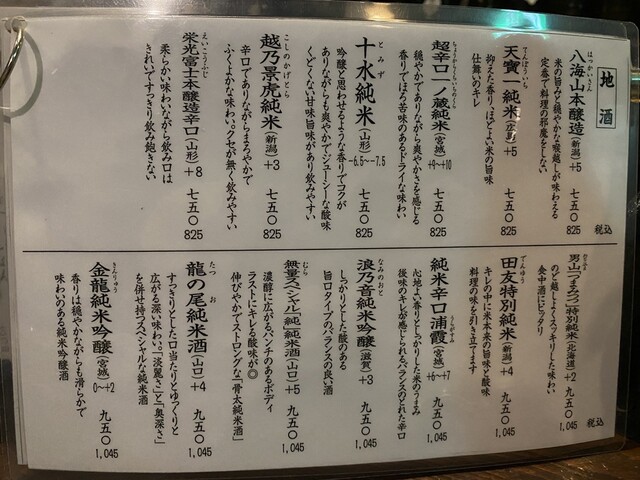 地酒
八海山本醸造(新潟)+5 七五〇 825 税込
はっかいさん
米の旨みと穏やかな喉越しが味わえる
定番で料理の邪魔をしない
天寶一純米(広島)+5 七五〇 825
てんぽういち
抑えた香り、ほどよい米の旨味
仕舞のキレ
超辛口一ノ蔵純米(宮城)+9~+10 七五〇 825
ちょうからくちいちのくら
穏やかでありながら爽やかさを感じる
香りでほろ苦味のあるドライな味わい
十水純米(山形)-6.5~-7.5 七五〇 825
とみず
吟醸と思わせるような香りでコクが
ありながらも爽やかでジューシーな酸味
くどくない甘味旨味があり飲みやすい
越乃景虎純米(新潟)+3 七五〇 825
こしのかげとら
辛口でありながらまろやかで
ふくよかな味わい。クセが無く飲みやすい
栄光冨士本醸造辛口(山形)+8 七五〇 825
えいこうふじ
柔らかい味わいながら飲み口は
きれいですっきり飲み飽きない
男山「つまみつ」特別純米(北海道)+2 九五〇 1,045 税込
のど越しよくスッキリした味わい
食中酒にピッタリ
田友特別純米(新潟)+4 九五〇 1,045
でんゆう
キレの中に米本来の旨味と酸味
料理の味を引き立てます
純米辛口浦霞(宮城)+6~+7 九五〇 1,045
うらがすみ
心地よい香りとしっかりした米のうまみ
後味のキレが感じられるバランスのとれた辛口
浪乃音純米吟醸(滋賀)+3 九五〇 1,045
なみのおと
しっかりとした酸のある
旨口タイプのバランスの良い酒
無量スペシャル「純」純米酒(山口)+5 九五〇 1,045
むら
濃醇に広がるパンチのあるボディ
ラストにキレる酸味が◎
伸びやかでストロングな「骨太純米酒」
龍の尾純米酒(山口)+4 九五〇 1,045
たつ お
すっきりとした口当たりとゆっくりと
広がる深い味わい。「淡麗さ」と「奥深さ」
を併せ持つスペシャルな純米酒
金龍純米吟醸(宮城)0~+2 九五〇 1,045
きんりゅう
香りは穏やかながらも滑らかで
味わいのある純米吟醸酒